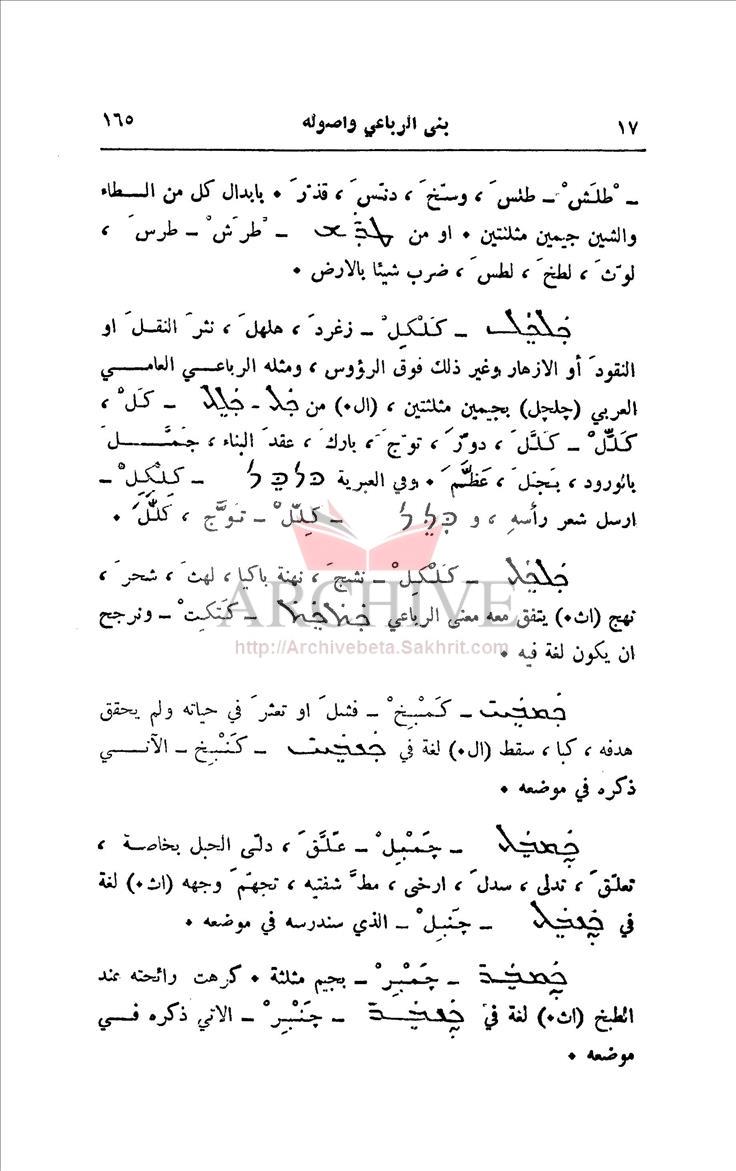 ١٦٥ بنى الرباعي واصوله ١٧
ـ ْطلَش ْ ـ طنّس َ ، وسّخ َ ، دنّس َ ، قذّر َ ٠ بابدال كل من الطاء
والشين جيمين مثلثتين ٠ او من ـ ْطر َش ْ ـ طرس َ ،
لوّث َ ، لطخ َ ، لطس َ ، ضرب شيئا بالارض ٠
ـ كَلْكِل ْ ـ زغرد َ ، هلهل َ ، نثر َ النقل َ او
النقود َ أو الازهار وغير ذلك فوق الرؤوس ، ومثله الرباعي العامي
العربي (چلچل) بجيمين مثلثتين ، (ال٠) من ـ ـ كَل ْ ،
كَلّل ْ ـ كَلَّل َ ، دوّر َ ، توّج َ ، بارك َ ، عقد َ البناء ، جمَّل َ
بالورود ، بَجَل َ ، عَظَّم َ ٠ وفي العبرية כלכל ـ كِلْكِل ْ ـ
ارسل شعر رأسه ، و כלל ـ كِلّل ْ ـ تَوَّج ، كَلَّل َ ٠
ـ كَلْكِل ْ ـ نشج َ ، نهنة باكيا ، لهث َ ، شحر َ ،
نهج (اث٠) يتفق معه معنى الرباعي ـ كَتكِت ْ ـ ونرجح
ان يكون لغة فيه ٠
ARCHIVE
http://Archivebeta.Sakhrit.com
ـ كَمْبِخ ْ ـ فشل َ او تعثر َ في حياته ولم يحقق
هدفه ، كبا ، سقط (ال٠) لغة في ـ كَنْبِخ ـ الآتي
ذكره في موضعه ٠
ـ چَمْبِل ْ ـ علَّق َ ، دلّى الحبل بخاصة ،
تعلّق َ ، تدلى ، سدل َ ، ارخى ، مط َّ شفتيه ، تجهّم َ وجهه (اث٠) لغة
في ـ چَنبِل ْ ـ الذي سندرسه في موضعه ٠
ـ چَمْبِر ْ ـ بجيم مثلثة ٠ كرهت رائحته عند
الطبخ (اث٠) لغة في ـ چَنْبِر ْ ـ الاتي ذكره في
موضعه ٠